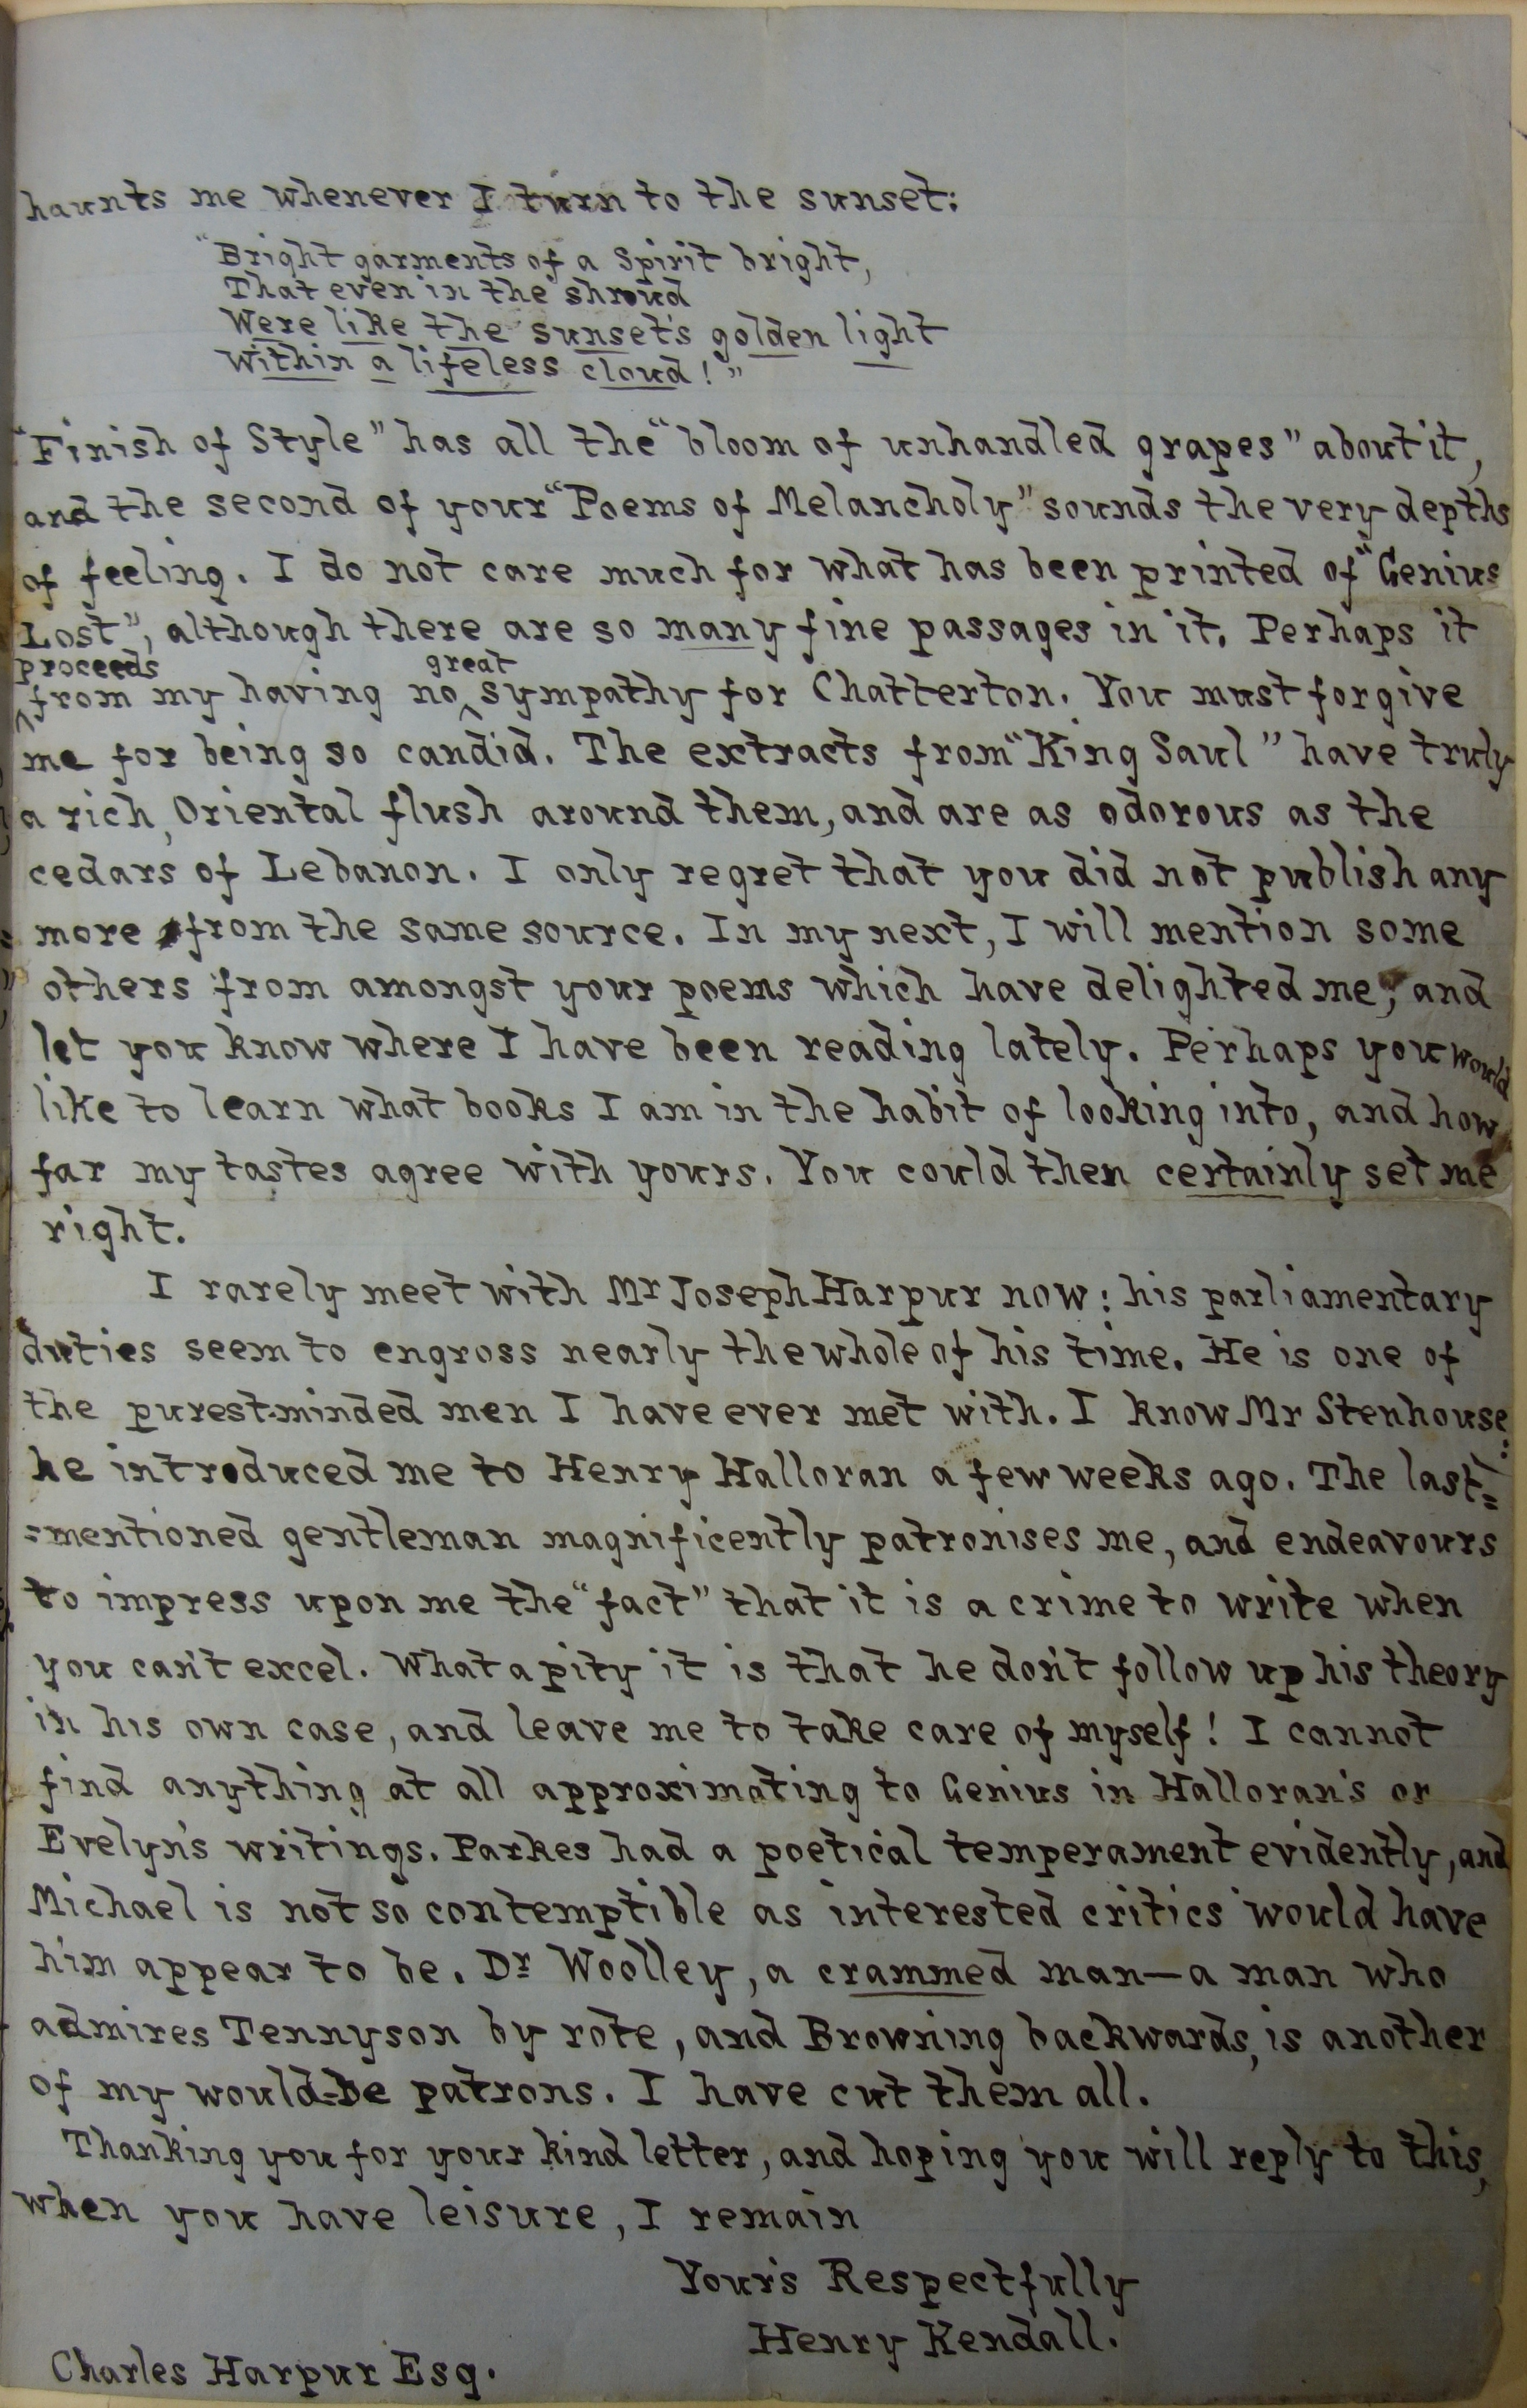 haunts me whenever I turn to the sunset:
"Bright garments of a Spirit bright,
That even in the shroud
Were like the sunset's golden light
Within a lifeless cloud!"
"Finish of Style" has all the "bloom of unhandled grapes" about it,
and the second of your "Poems of Melancholy" sounds the very depths
of feeling. I do not care much for what has been printed of "Genius
Lost", although there are so many fine passages in it. Perhaps it
proceeds great
from my having no sympathy for Chatterton. You must forgive
me for being so candid. The extracts from "King Saul" have truly
a rich, Oriental flush around them, and are as odorous as the
cedars of Lebanon. I only regret that you did not publish any
more from the same source. In my next, I will mention some
others from amongst your poems which have delighted me, and
let you know where I have been reading lately. Perhaps you would
like to learn what books I am in the habit of looking into, and how
far my tastes agree with yours. You could then certainly set me
right.
I rarely meet with Mr Joseph Harpur now: his parliamentary
duties seem to engross nearly the whole of his time. He is one of
the purest-minded men I have ever met with. I know Mr Stenhouse:
he introduced me to Henry Halloran a few weeks ago. The last=
=mentioned gentleman magnificently patronises me, and endeavours
to impress upon me the "fact" that it is a crime to write when
you can't excel. What a pity it is that he don't follow up his theory
in his own case, and leave me to take care of myself! I cannot
find anything at all approximating to Genius in Halloran's or
Evelyn's writings. Parkes had a poetical temperament evidently, and
Michael is not so contemptible as interested critics would have
him appear to be. Dr Woolley, a crammed man—a man who
admires Tennyson by rote, and Browning backwards, is another
of my would-be patrons. I have cut them all.
Thanking you for your kind letter, and hoping you will reply to this,
when you have leisure, I remain
Your's Respectfully
Henry Kendall.
Charles Harpur Esq.